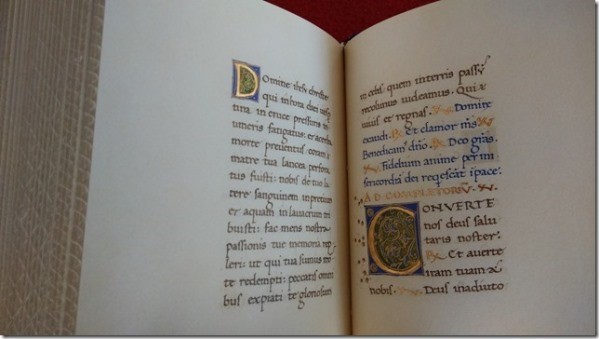 Domine ihesu christe
qui in hora diei
tina in cruce
umeris fatigatus: et acerba
morte preuentus:
matre tua lancea perfora
tus fuisti: nobis de tuo la
tere sanguinem in pretium
et aquam in lauacrum tri
buisti: fac mens nostra
passionis tue memoria rep
leri: ut qui tua sumus mor
te redempti: peccatis omni
bus expiati te gloriosum
in celis, quem in terris
recolimus uideamus. Qui
uiuis et regnas. Domine
exaudi. ℟ Et clamor
dño. ℟ Deo grãs.
Fidelium anime per mi
sericordiã dei reqescãt ĩ pace.
AD COMPLETORIŨ
CONVERTE
nos deus salu
taris noster.
℟ Et auerte
iram tuam
nobis. Deus in adiuto